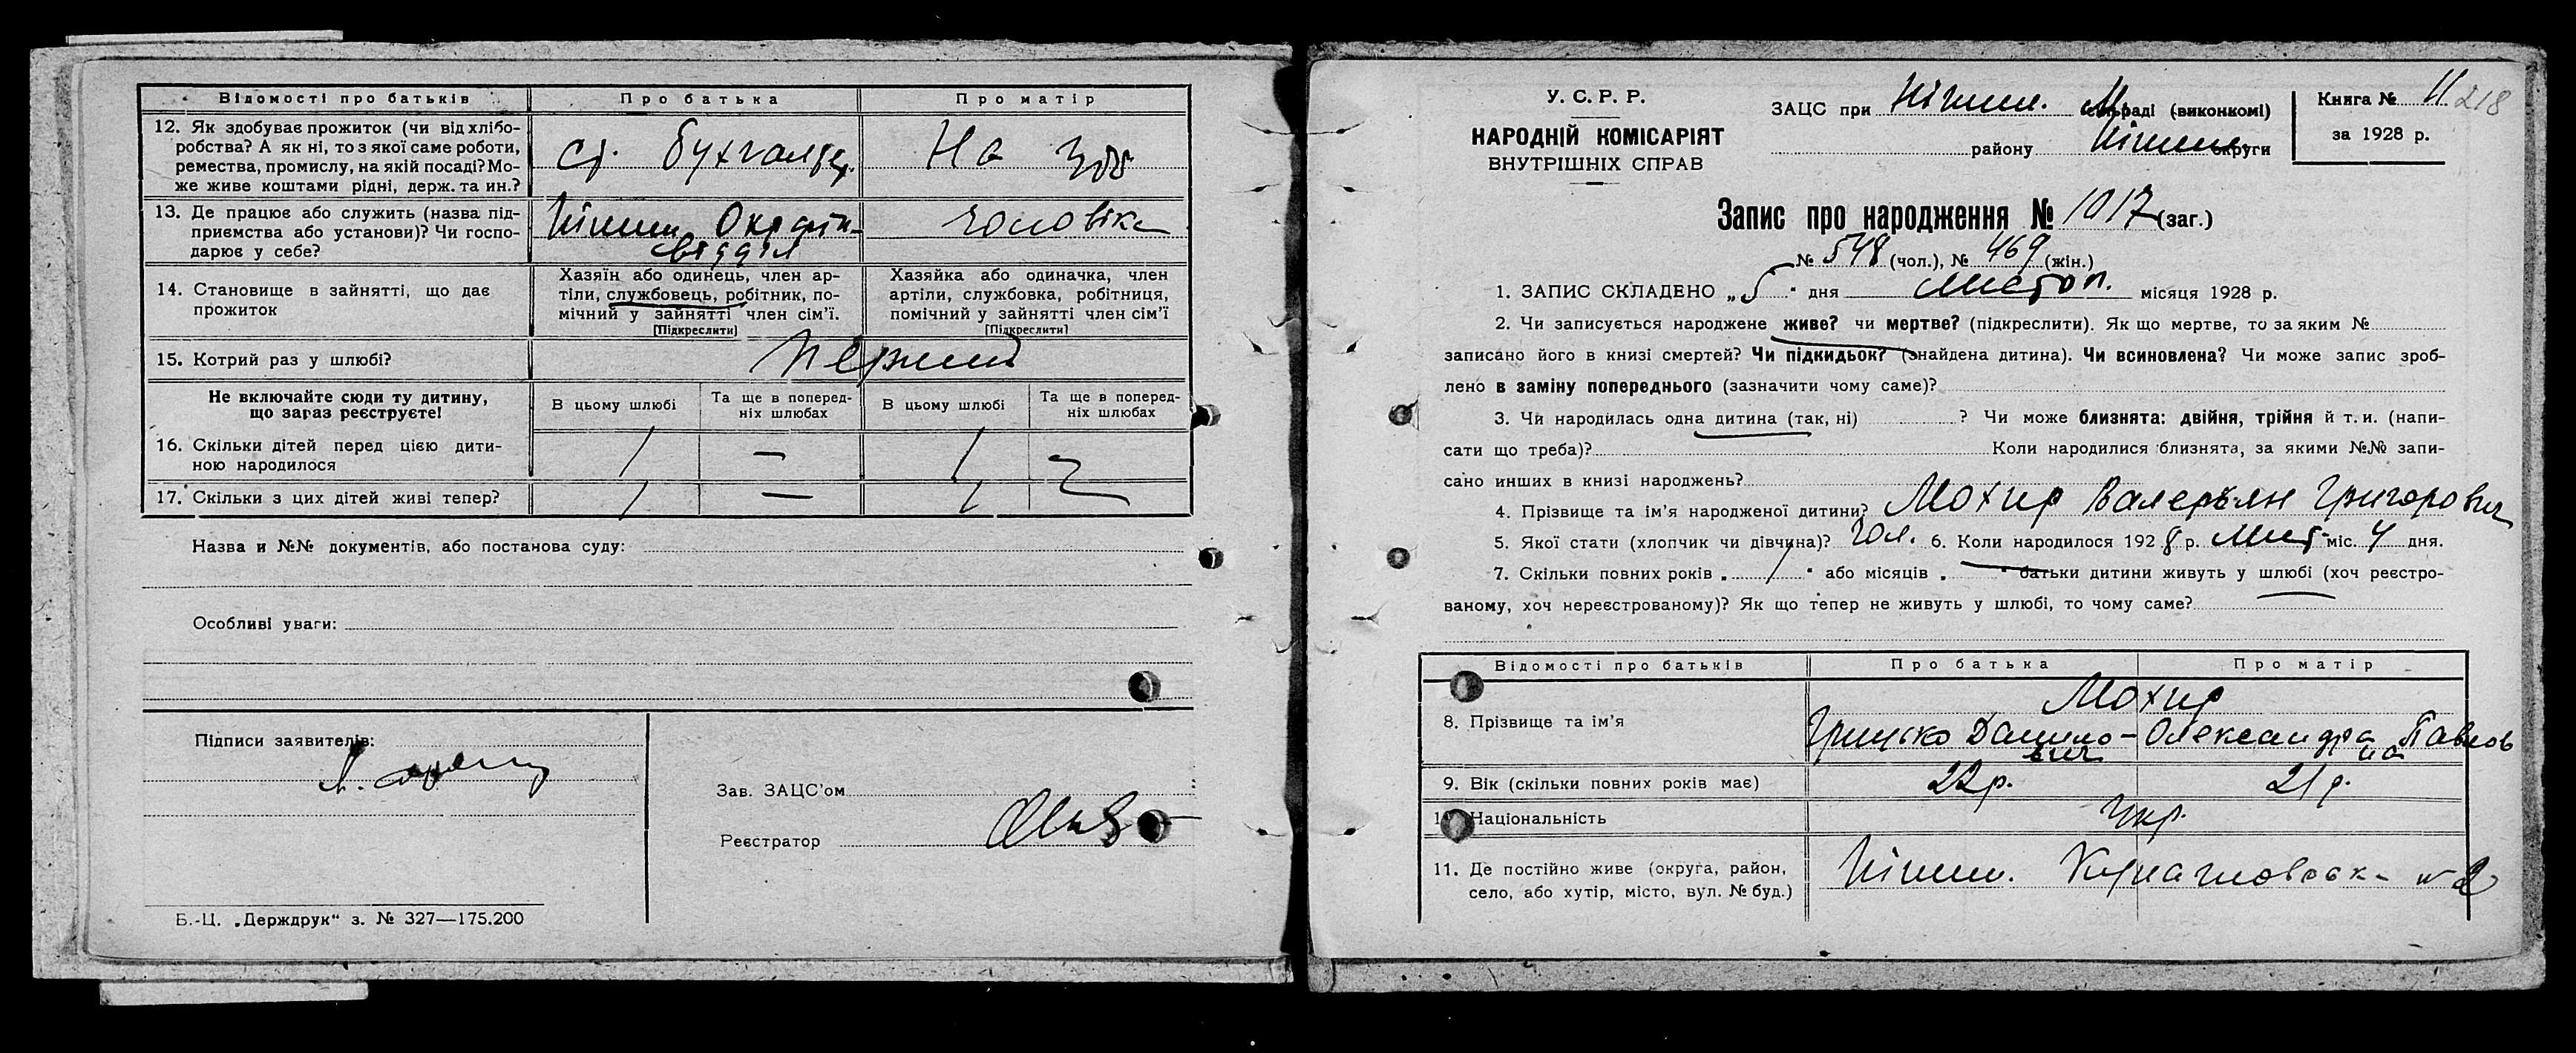 Відомості про батьків Про батька Про матір
12. Як здобуває прожиток (чи від хлібо-
робства? А як ні, то з якої саме роботи,
ремества, промислу, на якій посаді? Мо-
же живе коштами рідні, держ. та ин.?
Ст. бухгалтер. На
13. Де працює або служить (назва під-
приємства або установи)? Чи госпо-
дарює у себе?
Ніжин. Окрфін- чоловіка
відділ
14. Становище в зайнятті, що дає
прожиток
Хазяїн або одинець, член ар-
тіли, службовець, робітник, по-
мічний у зайнятті член сім'ї.
(Підкреслити)
Хазяйка або одиначка, член
артіли, службовка, робітниця,
помічний у зайнятті член сім'ї
(Підкреслити)
15. Котрий раз у шлюбі? Перший
Не включайте сюди ту дитину,
що зараз реєструєте!
В цьому шлюбі Та ще в поперед-
ніх шлюбах В цьому шлюбі Та ще в поперед-
ніх шлюбах
16. Скільки дітей перед цією дити-
ною народилося 1 — 1
17. Скільки з цих дітей живі тепер? 1 — 1
Назва и №№ документів, або постанова суду:
Особливі уваги:
Підписи заявителів:
Зав. ЗАЦС'ом
Реєстратор
Б.-Ц. „Держдрук“ з. № 327—175.200
У. С. Р. Р.
НАРОДНІЙ КОМІСАРІЯТ
ВНУТРІШНІХ СПРАВ
ЗАЦС при Ніжин. М. сільраді (виконкомі)
району Ніжин. округи
Книга № 11 218
за 1928 р.
Запис про народження № 1017 (заг.)
№ 548 (чол.), № 469 (жін.)
1. ЗАПИС СКЛАДЕНО „5“ дня Листоп. місяця 1928 р.
2. Чи записується народжене живе? чи мертве? (підкреслити). Як що мертве, то за яким №
записано його в книзі смертей? Чи підкидьок? (знайдена дитина). Чи всиновлена? Чи може запис зроб-
лено в заміну попереднього (зазначити чому саме)?
3. Чи народилась одна дитина (так, ні) ? Чи може близнята: двійня, трійня й т. и. (напи-
сати що треба)? Коли народилися близнята, за якими №№ запи-
сано инших в книзі народжень?
4. Прізвище та ім'я народженої дитини? Мохир Валеріян Григорович
5. Якої стати (хлопчик чи дівчина)? Чол. 6. Коли народилося 1928 р. Лист. міс. 4 дня.
7. Скільки повних років „ 1 “ або місяців „ “ батьки дитини живуть у шлюбі (хоч реєстро-
ваному, хоч нереєстрованому)? Як що тепер не живуть у шлюбі, то чому саме?
Відомості про батьків Про батька Про матір
Мохир
8. Прізвище та ім'я Грицько Данило- Олександра Павлов
вич на
9. Вік (скільки повних років має) 22 р. 21 р.
10. Національність Укр.
11. Де постійно живе (округа, район,
село, або хутір, місто, вул. № буд.)
Ніжин. № 2